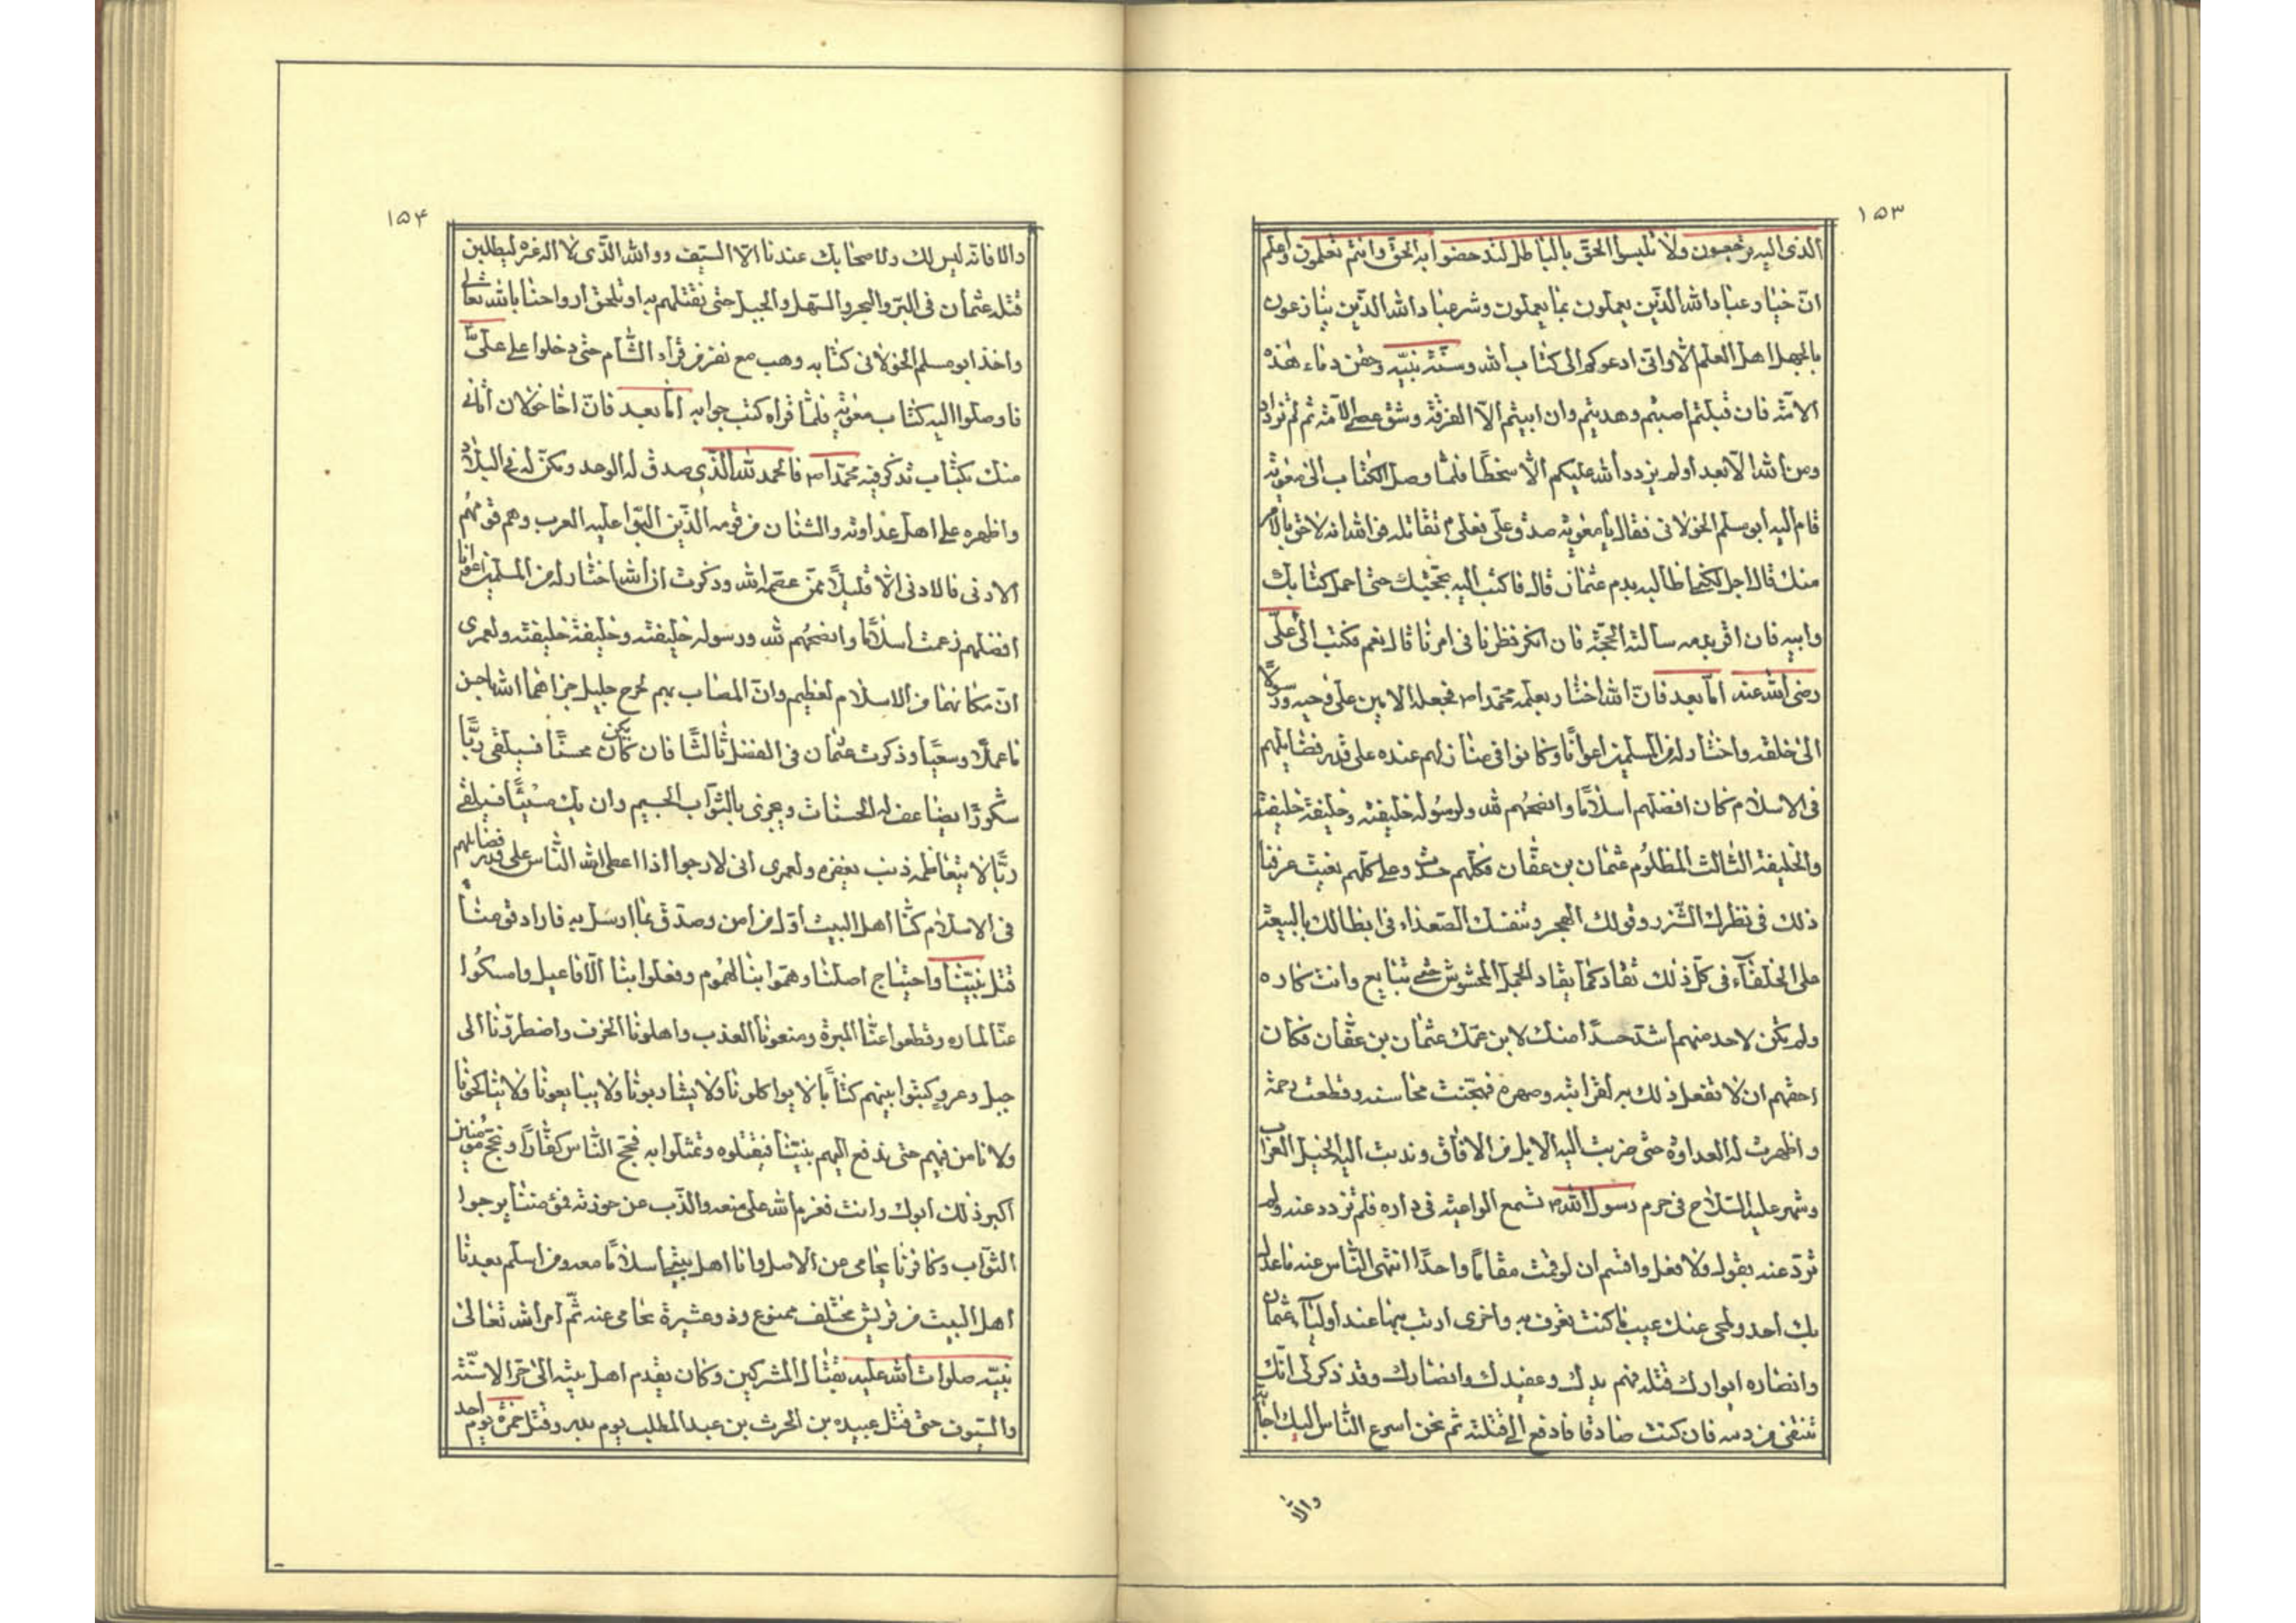 ١٥٣
الذى اليه ترجعون ولا تلبسوا الحق بالباطل لتدحضوا به الحق وانتم تعلمون واعلم
ان خيار عباد الله الذين يعملون بما يعملون وشر عباد الله الذين ينازعون
بالجهل اهل العلم الا وانى ادعوكم الى كتاب الله وسنة نبيه وحقن دماء هذه
الامة فان قبلتم اصبتم وهديتم وان ابيتم الا الفرقة وشق عصا الامة ثم لم تزداد
ومن الله الا بعدا ولم يزدد الله عليكم الا سخطا فلما وصل الكتاب الى معوية
قام اليه ابو مسلم الخولانى فقال يا معوية على تقاتله فوالله انه لاحق بالامر
منك قال اجل لكنما طالبه بدم عثمان قال فاكتب اليه بحجتيك حتى احمل كتابك
وابيه فان اقر سالته الحجة فان انكر نظرنا فى امرنا قال نعم فكتب الى على
رضى الله عنه اما بعد فان الله اختار بعلمه محمدا ص فجعله الامين على وحيه ورسولا
الى خلقه واختار له من المسلمين اعوانا وكانوا فى منازلهم عنده على قدر فضايلهم
فى الاسلام فكان افضلهم اسلاما وانصحهم لله ولرسوله خليفته وخليفة خليفته
والخليفة الثالث المظلوم عثمان بن عفان فكلهم حسدت وعلى كلهم بغيت عرفنا
ذلك فى نظرك الشزر وقولك الهجر وتنفسك الصعداء فى ابطائك بالبيعة
على الخلفآء فى كل ذلك تقاد كما يقاد الجمل المخشوش حتى تبايع وانت كاره
ولم يكن لاحد منهم اشد حسدا منك لابن عمك عثمان بن عفان فكان
احقهم ان لا تفعل ذلك به لقرابته وصهره فهجنت محاسنه وقطعت رحمة
واظهرت له العداوة حتى ضربت اليه الابل من الافاق وندبت اليه الخيل العراب
وشهر عليه السلاح فى حرم رسول الله ص تسمع الواعية فى داره فلم تزدد عنه ولم
ترد عنه بقول ولا فعل واقسم ان لو قمت مقاما واحدا انتهى الناس عنه ما عدل
بك احد ولمحى عنك عيب ما كنت تعرف به واخرى ادنب بها عند اوليآء عثمان
وانصاره ايوارك قتله فهم يدك وعضدك وانصارك وقد ذكر لى انك
تنتفى من دمه فان كنت صادقا فادفع الى قتلته ثم نحن اسرع الناس اليك اجابة
والا
١٥۴
والا فانه ليس لك ولاصحابك عندنا الا السيف ووالله الذى لا اله غيره ليطلبن
قتلة عثمان فى البر والبحر والسهل والجبل حتى نقتلهم به او تلحق ارواحنا بالله تعالى
واخذ ابو مسلم الخولانى كتابه وهب مع نفر من قراء الشام حتى دخلوا على على
فاوصلوا اليه كتاب معوية فلما قراه كتب جوابه اما بعد فان اخا خولان اتانى
منك بكتاب تذكر فيه محمدا ص فالحمد لله الذى صدق له الوعد ومكن له فى البلاد
واظهره على اهل عداوته والشنان من قومه الذين البوا عليه العرب وهم قومهم
الادنى فالادنى الا قليلا ممن عصم الله وذكرت ان الله اختار له من المسلمين اعوانا
افضلهم زعمت اسلاما وانصحهم لله ورسوله خليفته وخليفة خليفته ولعمرى
ان مكانهما من الاسلام لعظيم وان المصاب بهم لجرح جليل جزاهما الله باحسن
ما عملا وسعيا وذكرت عثمان فى الفضل ثالثا فان كان يكن محسنا فسيلقى ربا
شكورا يضاعف له الحسنات ويجزى بالثوآب الجسيم وان يك مسيئا فيلقى
ربا لا يتعاظمه ذنب يغفره ولعمرى انى لارجوا اذا اعطى الله الناس على قدر فضايلهم
فى الاسلام كنا اهل البيت اول من امن وصدق بما ارسل به فاراد قومنا
قتل نبينا واجتياح اصلنا وهموا بنا الهموم وفعلوا بنا الافاعيل وامسكوا
عنا الماره وقطعوا عنا الميرة ومنعونا العذب واهلونا الخوف واضطرونا الى
جبل وعر وكتبوا بينهم كتابا لا يواكلونا ولا يشاربونا ولا يبايعونا ولا يناكحونا
ولا نامن فيهم حتى ندفع اليهم نبينا فيقتلوه وتمثلوا به فحج الناس كفارا ونحج مومنين
اكبر ذلك ابوك وانت فعزم الله على منعه والذب عن حوذته فمؤمننا يرجوا
الثوآب وكافرنا يحامى عن الاصل وانا اهل بيته اسلاما معه ومن اسلم بعدنا
اهل البيت من قريش مختلف ممنوع وذو عشيرة تحامى عنه ثم امر الله تعالى
نبيه صلوات الله عليه بقتال المشركين وكان يقدم اهل بيته الى حر الاسنة
والسيوف حتى قتل عبيده بن الحرث بن عبد المطلب يوم بدر وقتل حمزة يوم احد